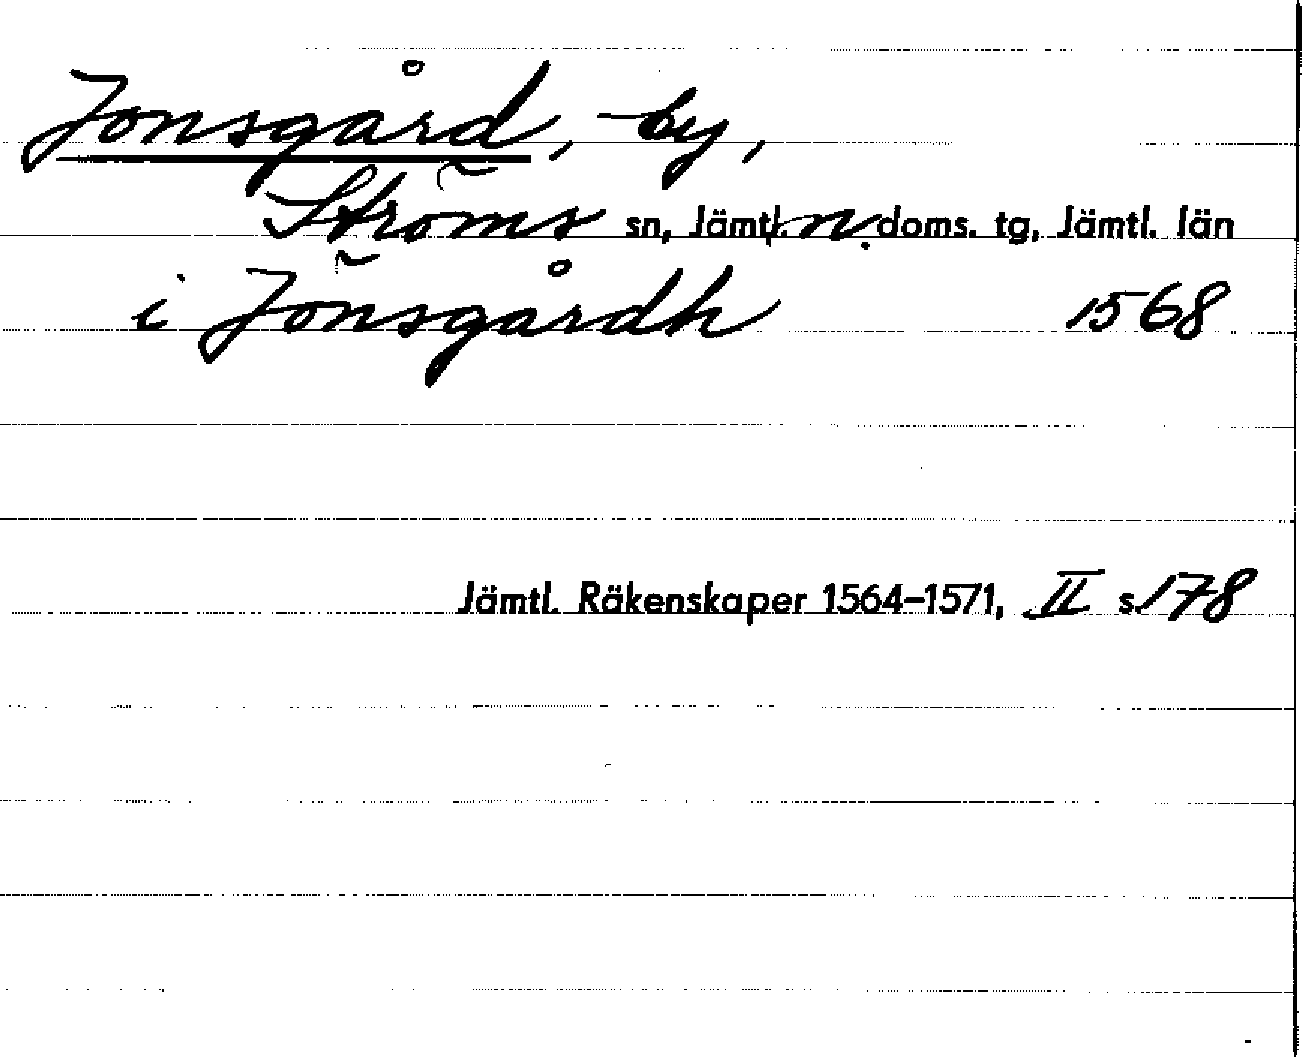 Jonsgård, by,
Ströms sn, Jämtl. n. doms. tg, Jämtl. län
i Jönsgårdh 1568
Jämtl. Räkenskaper 1564–1571, II s. 178